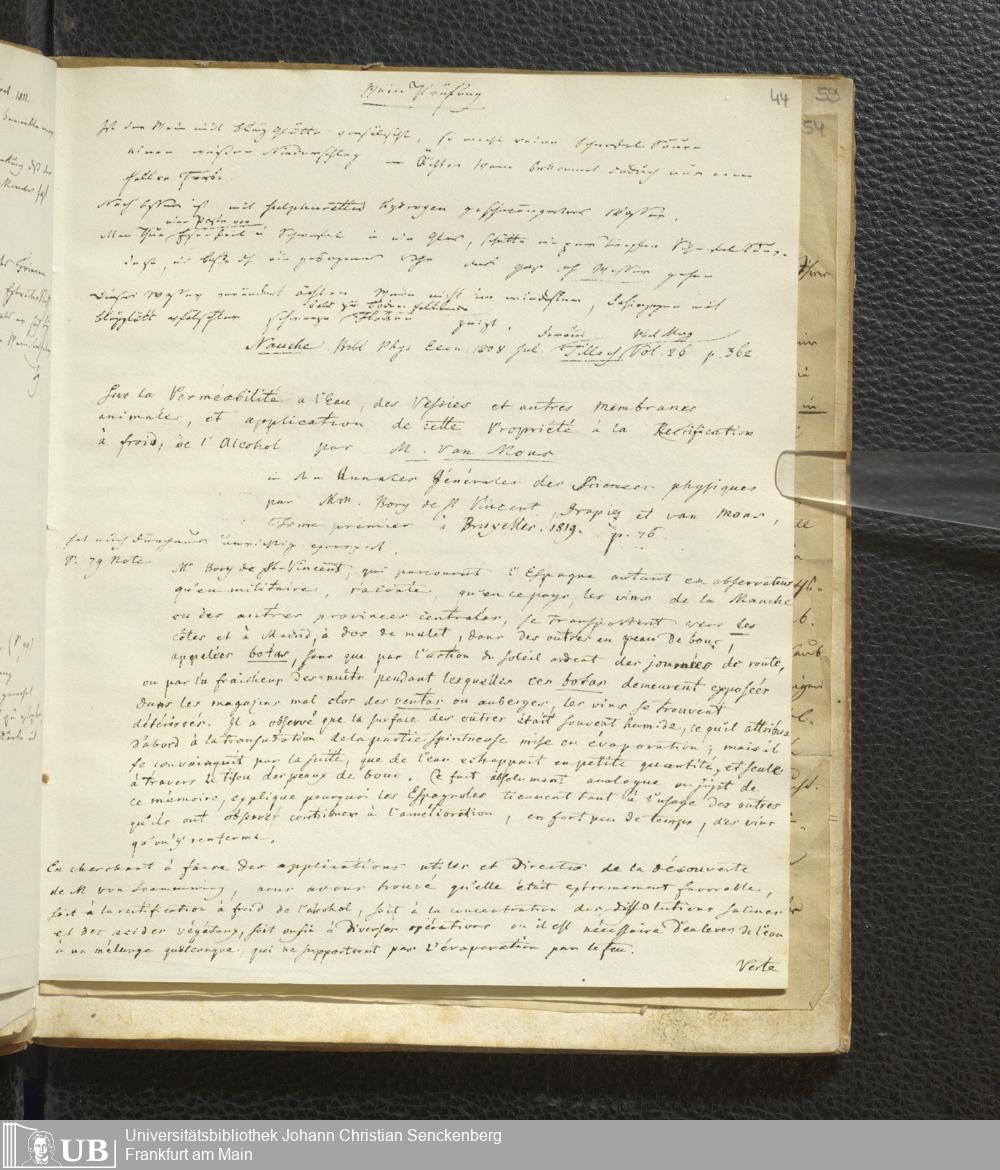 Wein Prüfung
44 59
54
Ist der Wein mit Bleyglätte verfälscht, so macht reine Schwefel Säure
einen weißen Niederschlag — Ächter Wein bekommt dadurch nur eine
hellere Farbe.
Noch besser ist mit sulphuretted hydrogen geschwängertes Wasser.
eine Paste von
Man thue Schwefel in ein Glas, schütte ein paar Tropfen Schwefel Säure
das Gas durch Wasser gehen
Dieses Wasser verändert ächten Wein nicht im mindesten, dahingegen mit
bald zu Boden fallende
Bleyglätt verfälschter schwarze Flocken zeigt.
daraus Phil Mag
Nauche Bibl. Phys Econ. 1808 Jul. Tilloch Vol. 26 p. 362
Sur la Perméabilité a l'Eau, des Vessies et autres Membranes
animales, et application de cette Propriété à la Rectification
à froid, de l'Alcohol par M. Van Mons
in Annales Générales des Sciences physiques
par MM. Bory de St Vincent, Drapiez et van Mons,
Tome premier à Bruxelles. 1819. p. 76
hat mich durchaus unrichtig
P. 79 Note Mr Bory de St-Vincent, qui parcourut l'Espagne autant en observateur
qu'en militaire, raconte, qu'en ce pays, les vins de la Manche
ou des autres provinces centrales, se transportent vers les
côtes et à Madrid, à dos de mulet, dans des outres en peau de bouc,
appelées botas, sans que par l'action du soleil ardent des journées de route,
ou par la fraicheur des nuits pendant lesquelles ces botas demeurent exposées
dans les magasins mal clos des ventas ou auberges, les vins se trouvent
détériorés. Il a observé que la surface des outres était souvent humide, ce qu'il attribua
d'abord à la transudation de la partie spiritueuse mise en évaporation; mais il
se convainquit par la suite, que de l'eau echappait en petite quantité, et seule
à travers le tissu des peaux de bouc. Ce fait absolument analogue au sujet de
ce mémoire, explique pourquoi les Espagnoles tiennent tant à l'usage des outres
qu'ils ont observés contribuer à l'amélioration, en fort peu de temps, des vins
qu'on y renferme.
En cherchant à faire des applications utiles et directes de la découverte
de M von Soemmering, nous avons trouvé qu'elle était extremement favorable,
soit à la rectification à froid de l'alcohol, soit à la concentration des dissolutions salines
et des acides végétaux, soit enfin à diverses opérations où il est nécessaire d'enlever de l'eau
à un mélange quelconque, qui ne supporterait pas l'évaporation par le feu.
Verte
UB
Universitätsbibliothek Johann Christian Senckenberg
Frankfurt am Main